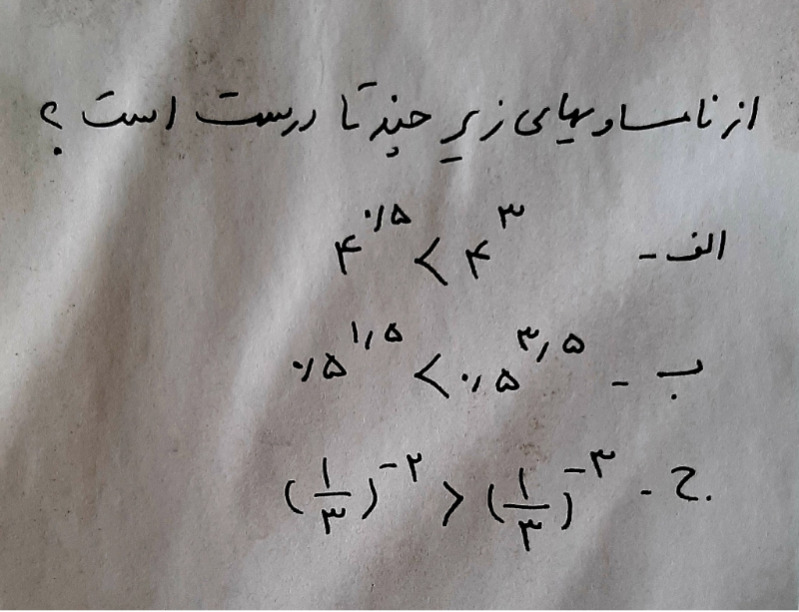 از نامساویهای زیر چند تا درست است؟
الف - ۴^۰٫۵ < ۴^۳
ب - ۰٫۵^۱٫۵ < ۰٫۵^۳٫۵
ج - (۱/۳)^-۲ > (۱/۳)^-۳